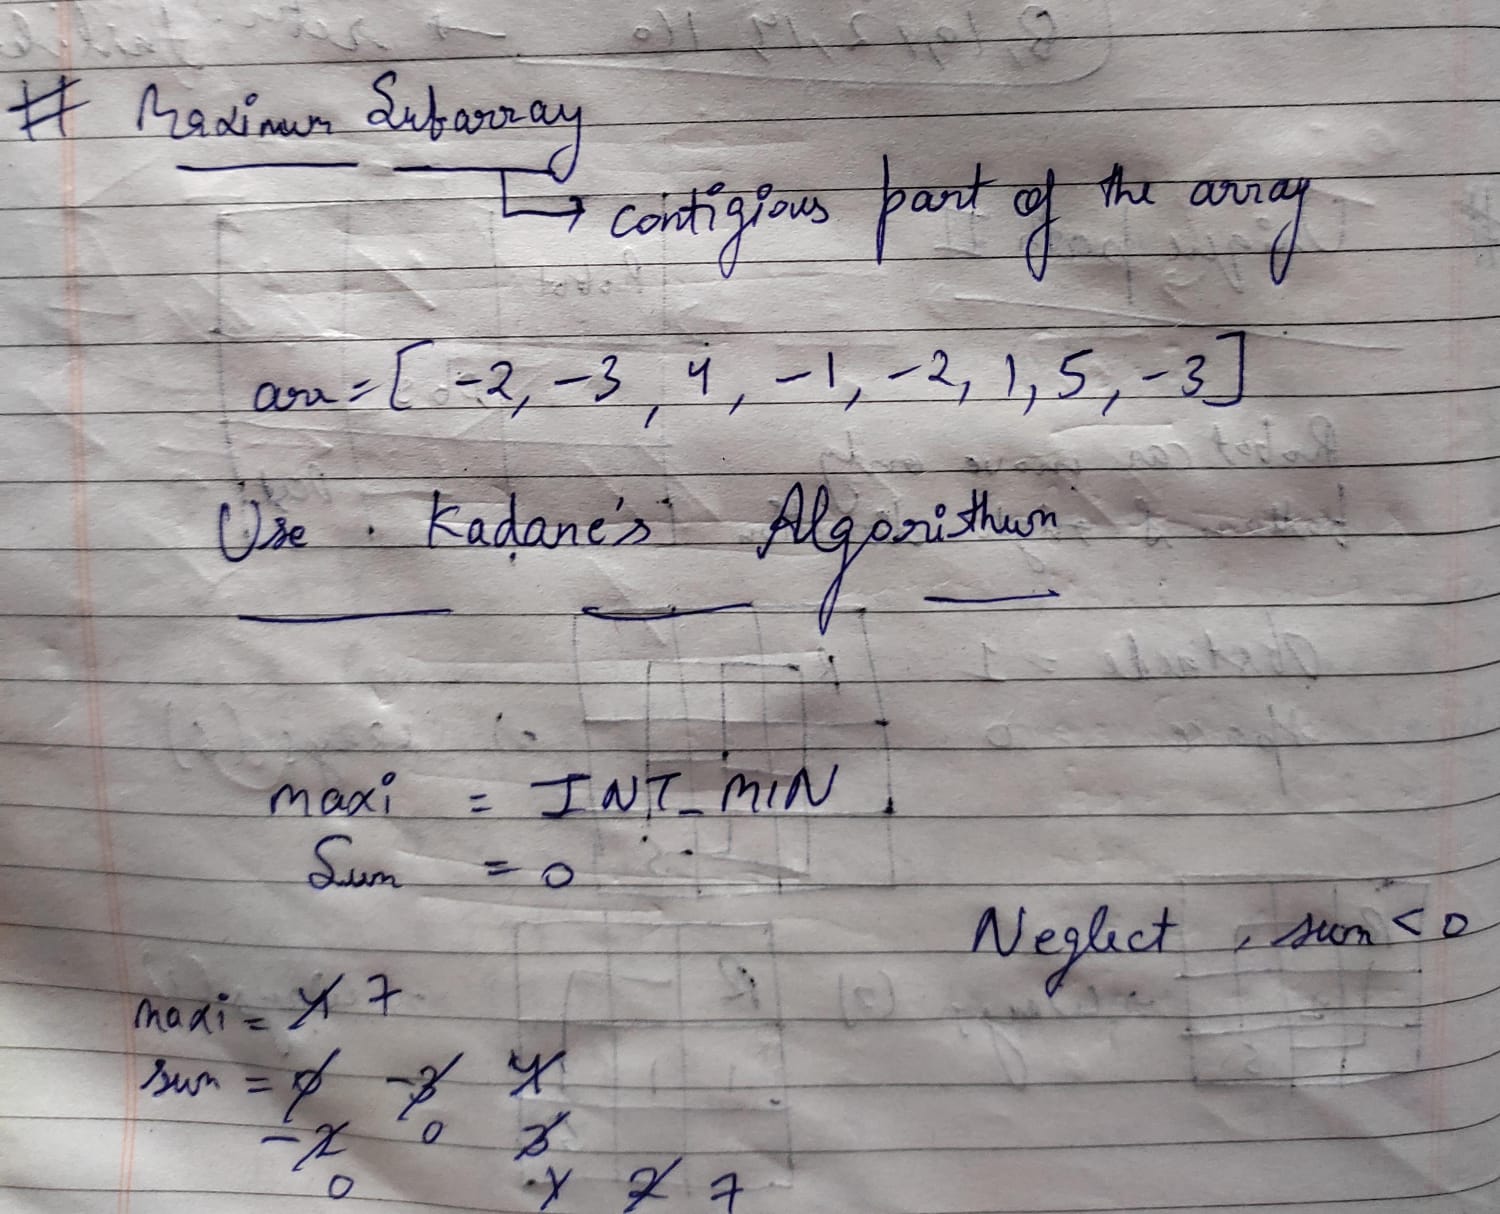 # Maximum Subarray
→ contigious part of the array
arr = [ -2, -3, 4, -1, -2, 1, 5, -3 ]
Use Kadane's Algorithm
maxi = INT_MIN
Sum = 0
Neglect, sum < 0
maxi = 4 7
sum = 0 -3 4
-2 0 3
0 1 2 7